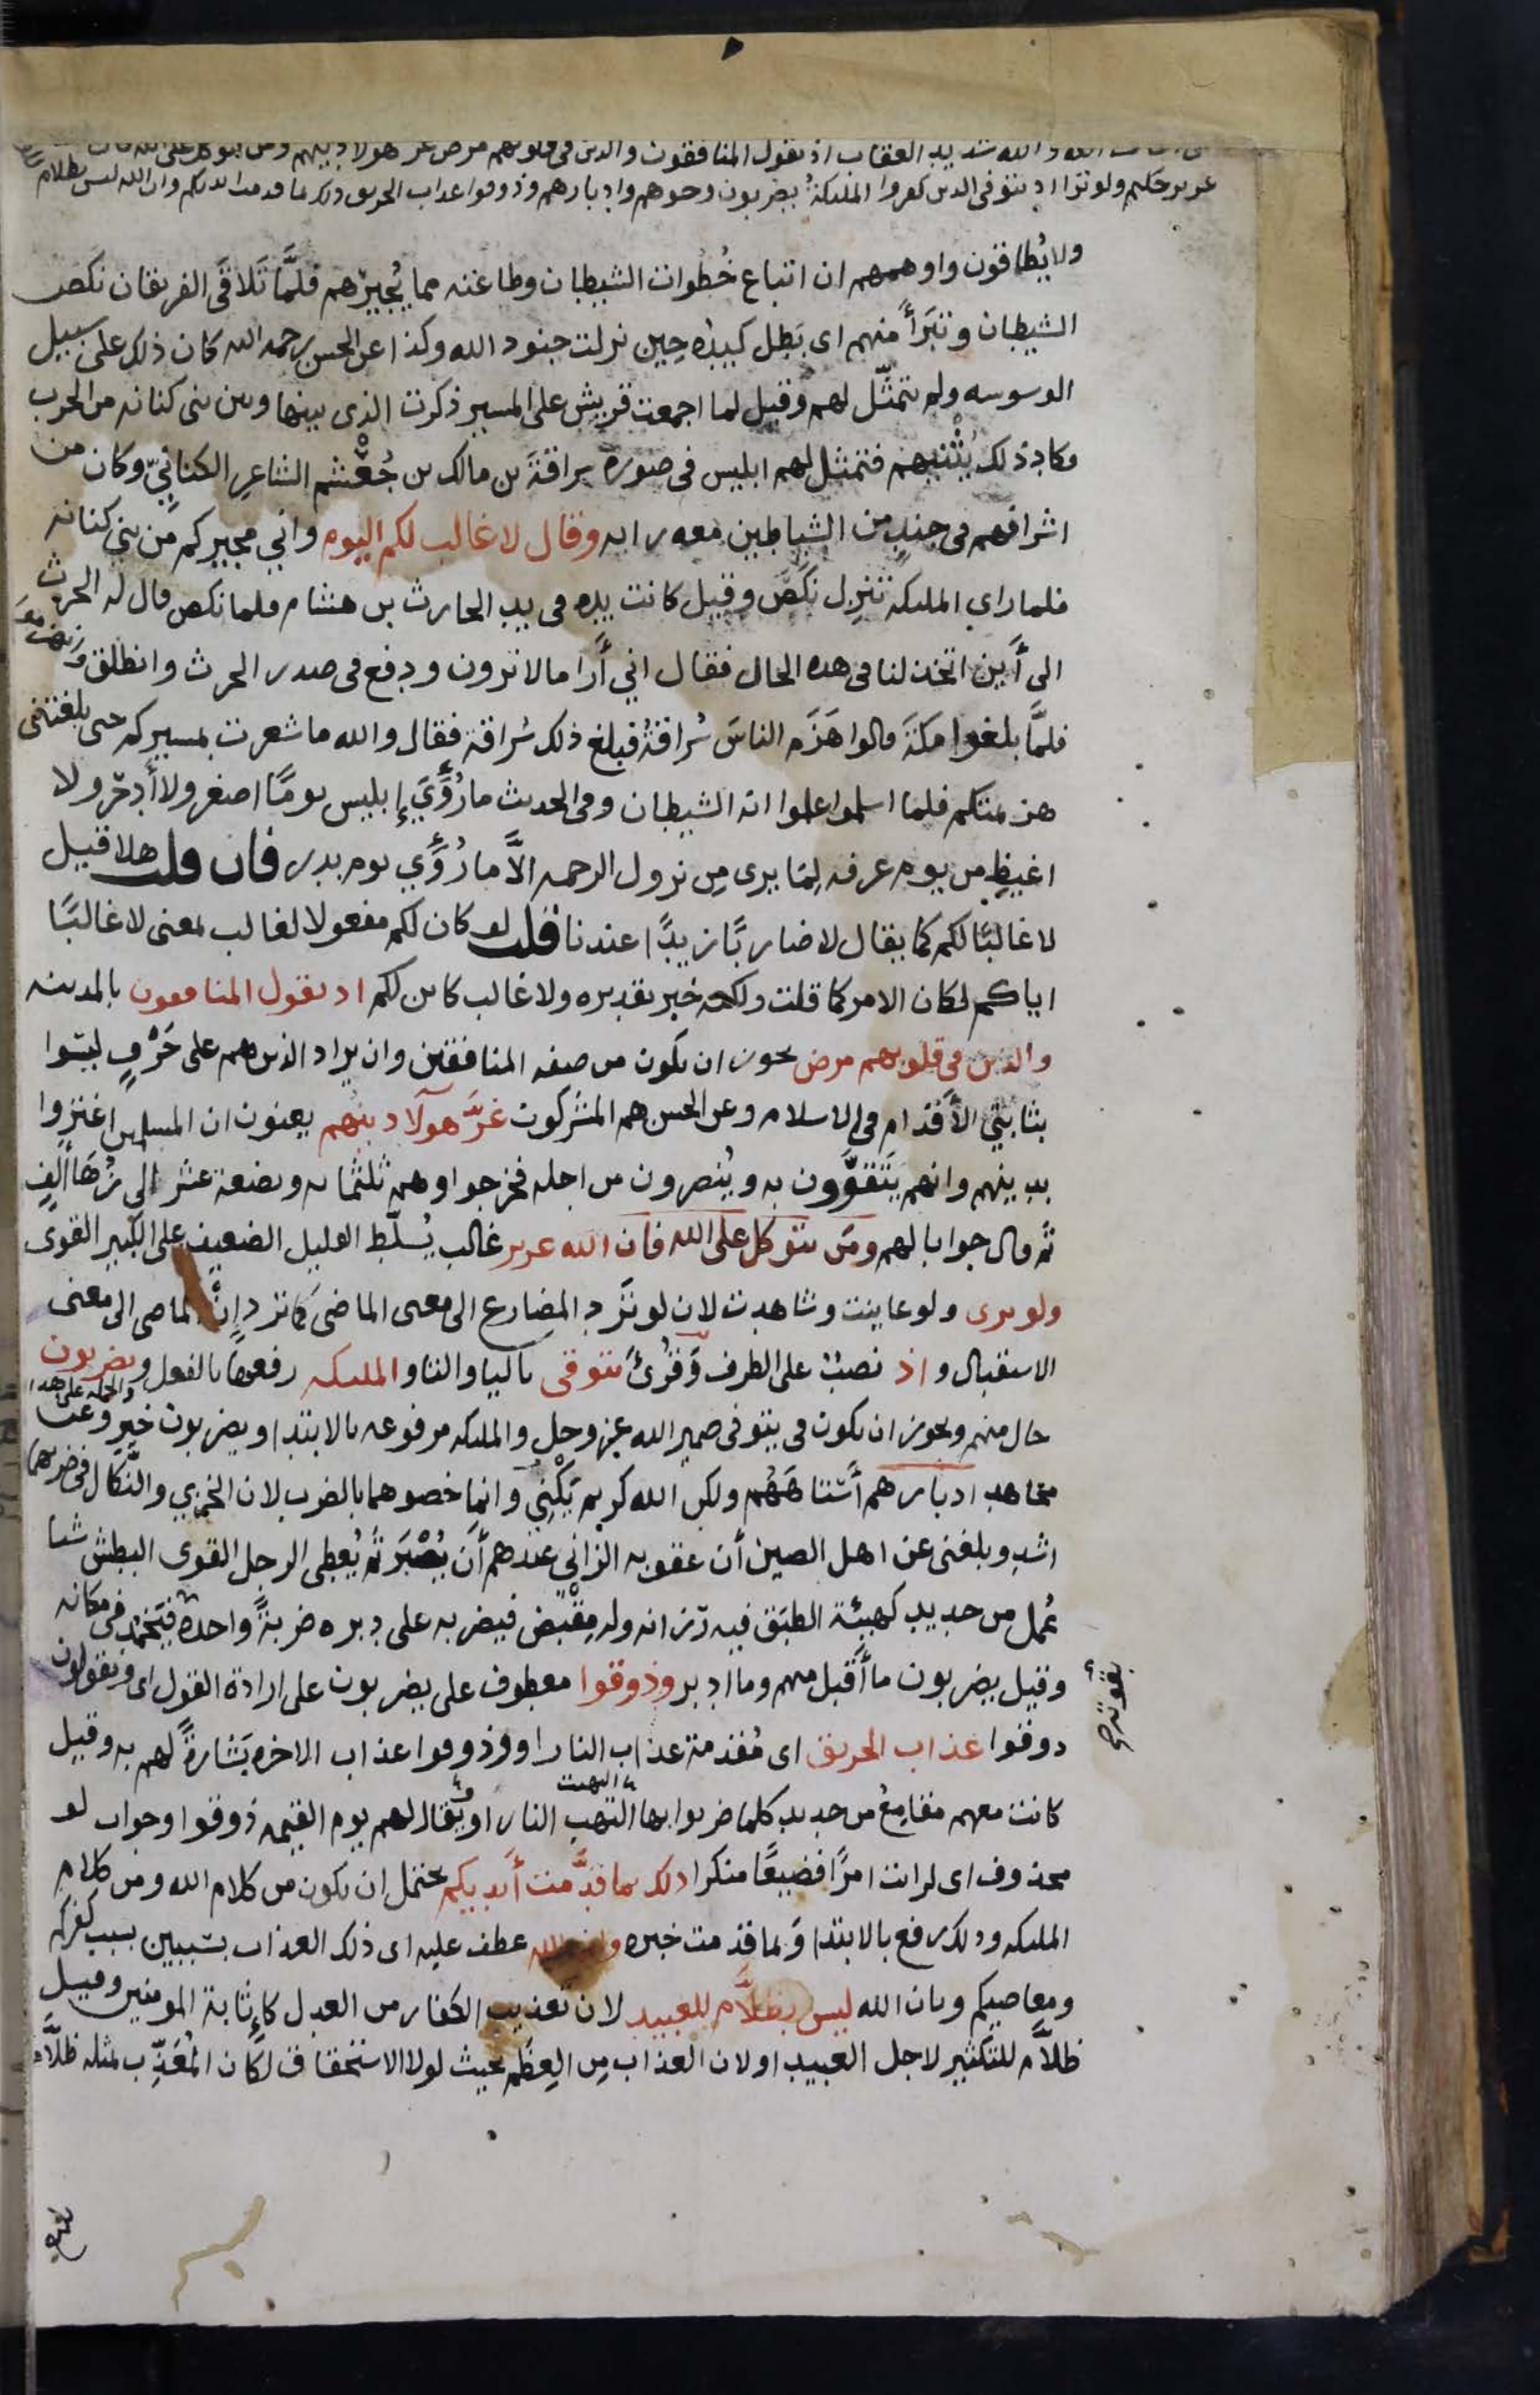 والله شديد العقاب اذ يقول المنافقون والذين في قلوبهم مرض غر هولا دينهم ومن يتوكل على الله فان
عزيز حكيم ولو ترا اذ يتوفى الذين كفروا الملىكة يضربون وجوههم وادبارهم وذوقوا عذاب الحريق ذلك بما قدمت ايديكم وان الله ليس بظلام
ولا يُطاقون واوهمهم ان اتباع خُطوات الشيطان وطاعته مما يُجيرهم فلمَّا تَلاقَى الفريقان نكَص
الشيطان وتبرَّأ منهم اى بَطل كيده حِين نزلت جنود الله وكذا عن الحسن رحمه الله كان ذلك على سبيل
الوسوسه ولم يتمثَّل لهم وقيل لما اجمعت قريش على المسير ذكرت الذى بينها وبين بنى كنانه من الحرب
فكاد ذلك يُثْنيهم فتمثل لهم ابليس فى صورة سراقةَ بن مالك بن جُعْشُم الشاعرِ الكنانيّ وكان من
اشرافهم فى جندٍ من الشياطين معه رايه وقال لا غالب لكم اليوم واني مجيركم من بني كنانه
فلما راي الملىكه تنزل نكَصَ وقيل كانت يده فى يد الحارث بن هشام فلما نكص قال له الحرث
الى أَين اتخذلنا فى هده الحال فقال اني أَرا مالا ترون ودفع فى صدر الحرث وانطلق وانهزموا
فلمَّا بلغوا مكةَ قالوا هَزَم الناسَ سُراقةُ فبلغ ذلك سُراقة فقال والله ما شعرت بمسيركم حتى بلغتنى
هزيمتكم فلما اسلموا علموا انه الشيطان وفى الحديث ما رُؤيَ إبليس يومًا اصغر ولا أدحر ولا
اغيظ من يوم عرفه لِمَا يرى من نزول الرحمه الاَّ ما رُؤي يوم بدر فان قلت هلا قيل
لا غالبًا لكم كما يقال لا ضاربًا زيدًا عندنا قلت لو كان لكم مفعولا لغالب بمعنى لا غالبًا
اياكم لكان الامر كما قلت ولكنه خبر تقديره ولا غالب كاىن لكم اذ يقول المنافقون بالمدينه
والذين في قلوبهم مرض يجوز ان يكون من صفه المنافقين وان يراد الذين هم على حَرْفٍ ليسُوا
بثابتي الأقدام فى الاسلام وعن الحسن هم المشركون غرَّ هولآ دينهم يعنون ان المسلمين اغتروا
بدينهم وانهم يَتَقوَّون به ويُنصرون من اجله فخرجوا وهم ثلثمايه وبضعة عشر الى زُهَا ألفٍ
ثم قال جوابا لهم ومن يتوكل على الله فان الله عزيز غالب يُسلّط القليل الضعيف على الكثير القوى
ولو ترى ولو عاينت وشاهدت لان لو تَرُد المضارع الى معنى الماضى كما ترد إِن الماضى الى معنى
الاستقبال و اذ نصبٌ على الظرف وقُرئ يتوفى باليا والتا و الملىكه رفعها بالفعل و يضربون
حال منهم ويجوز ان يكون فى يتوفى ضمير الله عز وجل والملىكه مرفوعه بالابتدا ويضربون خبر وعن
مجاهد ادبارهم أَستاهَهُم ولكن الله كريم يَكْنِي وانما خصوهما بالضرب لان الخزي والنَّكال فى ضربهما
اشد وبلغنى عن اهل الصين أن عقوبه الزاني عندهم أَن يُصْبَر ثم يُعطى الرجل القوى البطش شيا
عُمل من حديد كهيئة الطبَق فيه رَزانه وله مِقْبض فيضربه على دبره ضربةً واحدة فتجمد فى مكانه
وقيل يضربون ما أقبل منهم وما ادبر وذوقوا معطوف على يضربون على ارادة القول اى ويقولون
ذوقوا عذاب الحريق اى مُقدمة عذاب النار او وذوقوا عذاب الاخره بَشارةً لهم به وقيل
كانت معهم مقامِعُ من حديد كلما ضربوا بها التهب النار او ويُقال لهم يوم القيمه ذوقوا وجواب لو
محذوف اى لرايت امرًا فظيعًا منكرا ذلك بما قدَّمت أيديكم يحتمل ان يكون من كلام الله ومن كلام
الملىكه وذلك رفع بالابتدا وَبما قدمت خبره وان الله عطف عليه اى ذلك العذاب بسببين بسبب كفركم
ومعاصيكم وبان الله ليس بظلَّام للعبيد لان تعذيب الكفار من العدل كإثابة المومنين وقيل
ظلاَّم للتكثير لاجل العبيد او لان العذاب مِن العِظَم بحيث لولا الاستحقاق لكان المُعَذِّب بمثله ظلَّام